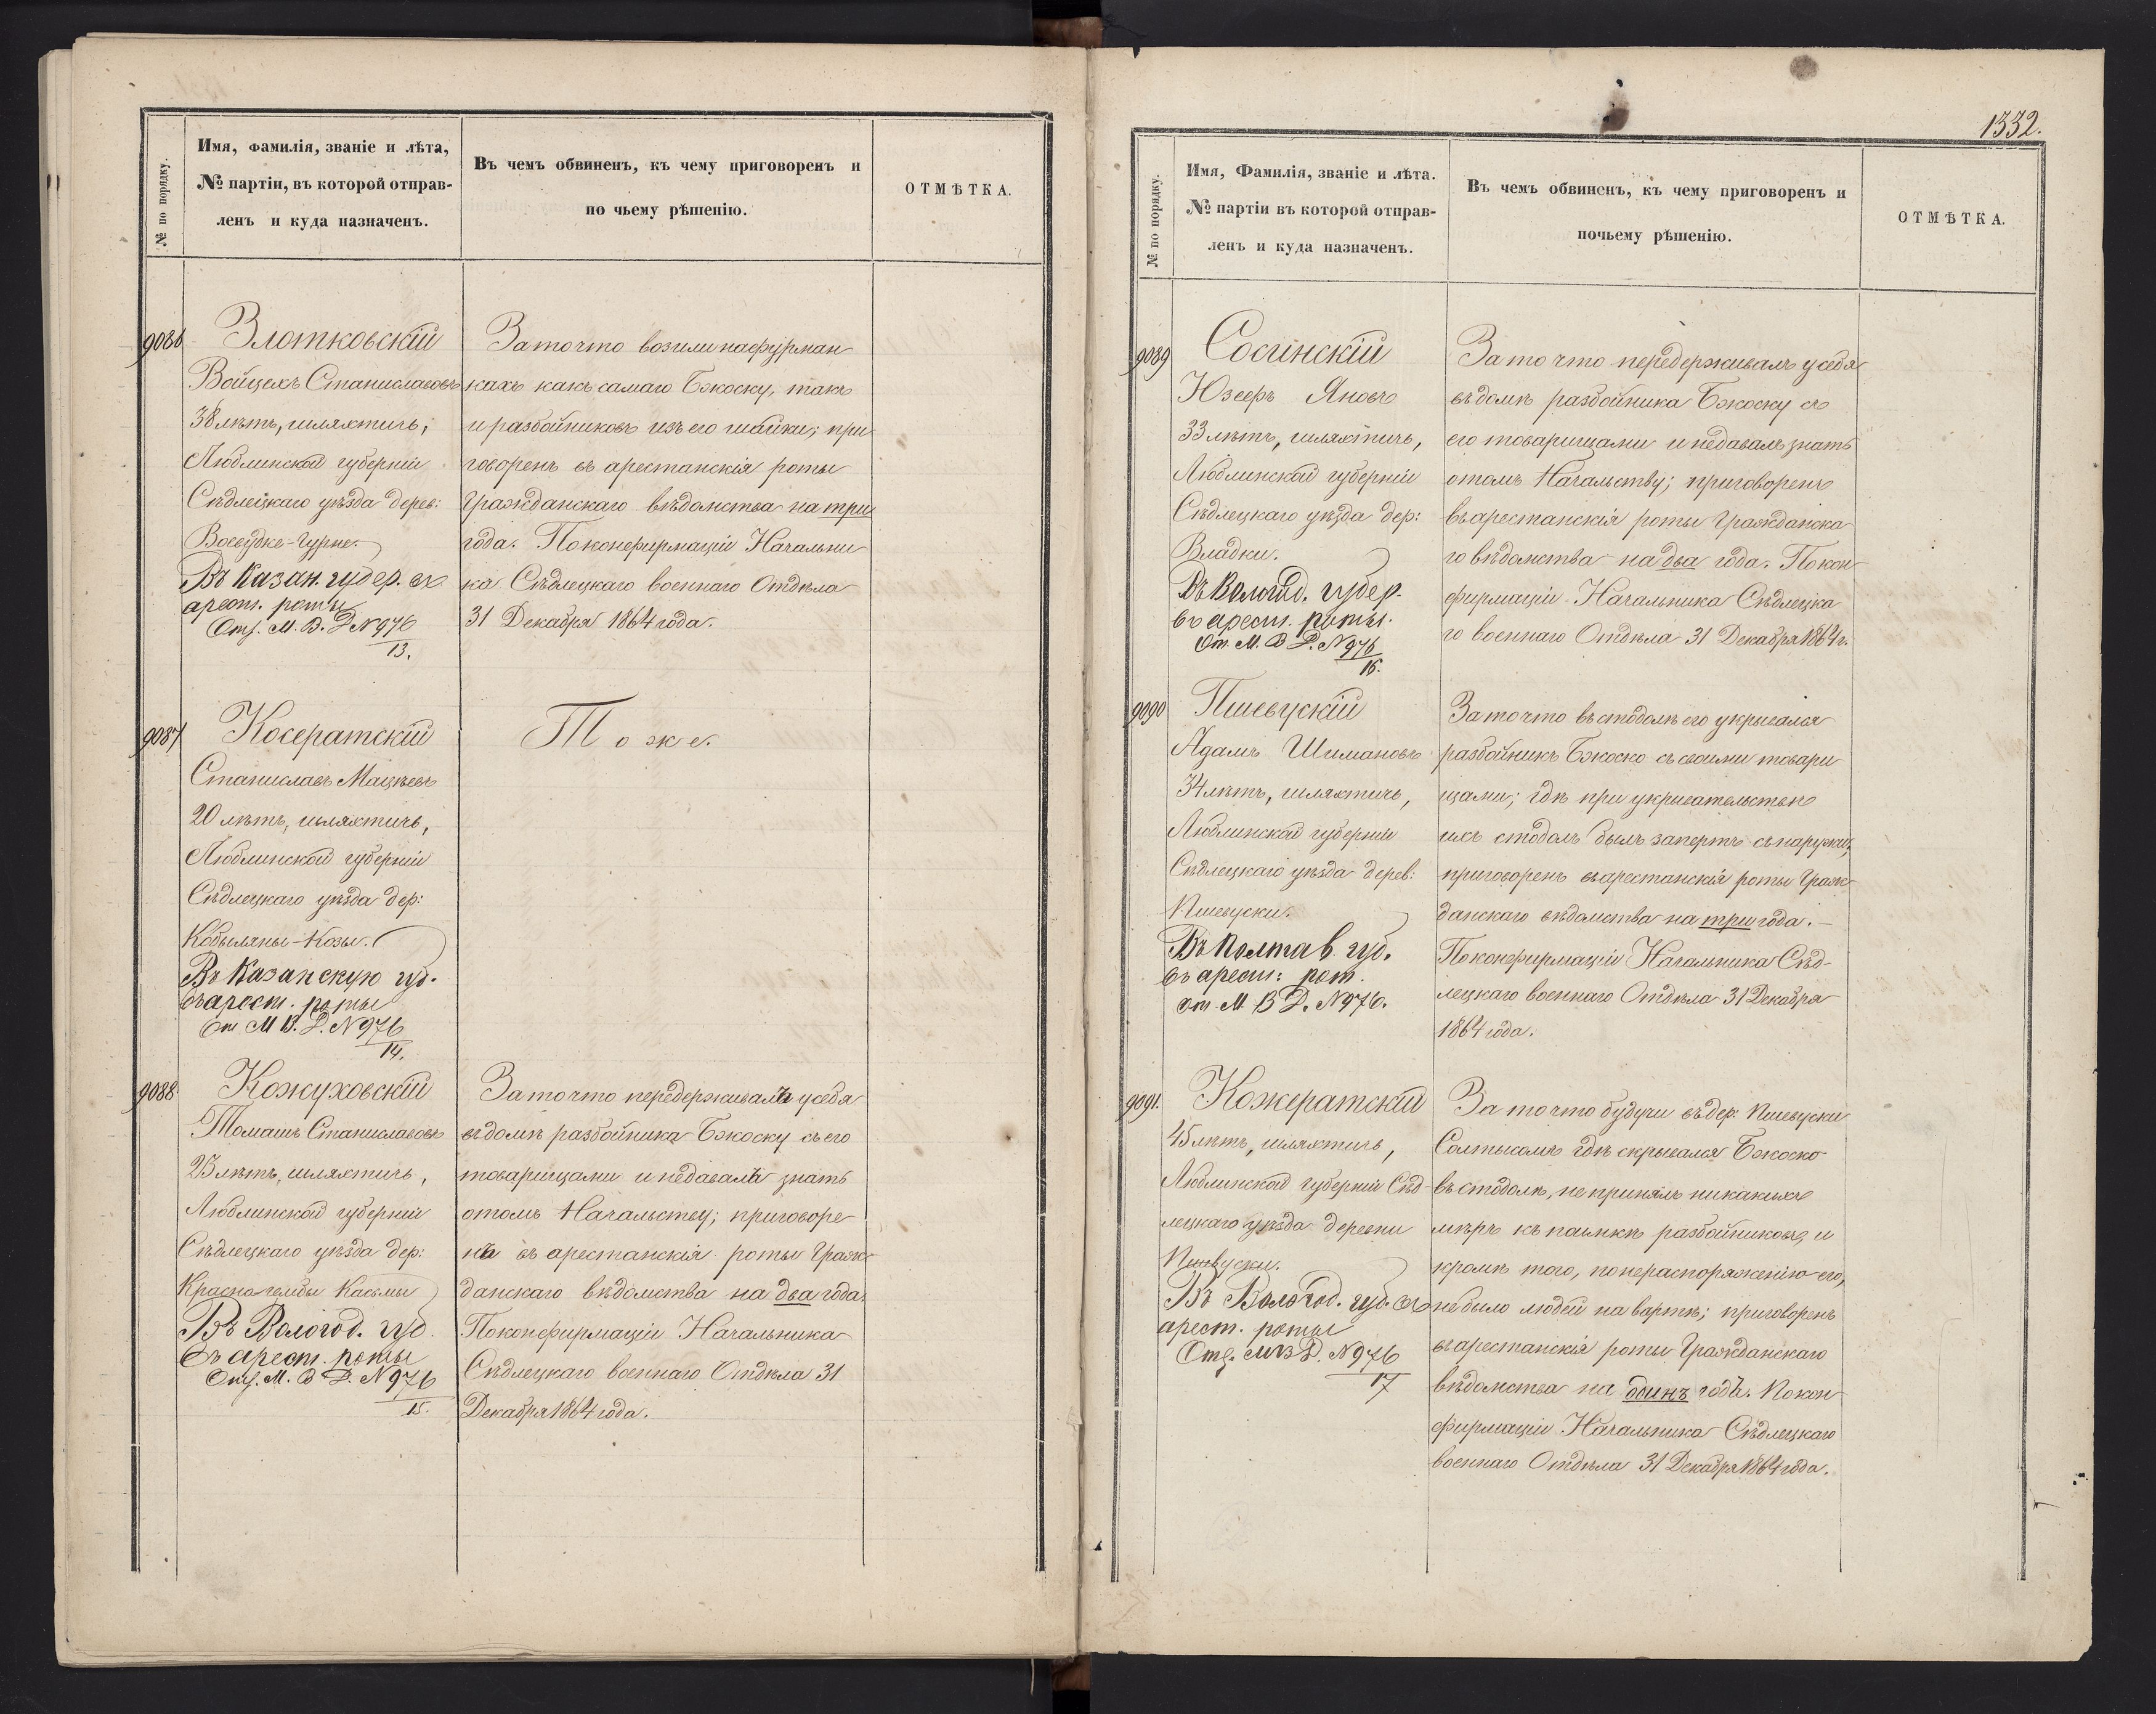 № по порядку.
Имя, фамилія, званіе и лѣта,
№ партіи, въ которой отправ-
ленъ и куда назначенъ.
Въ чемъ обвиненъ, къ чему приговоренъ и
по чьему рѣшенію.
ОТМѢТКА.
9086
Злотковскій
Войцехъ Станиславовъ
38 лѣтъ, шляхтичь,
Люблинской губерніи
Сѣдлецкаго уѣзда дерев:
Воевудке-Гурне.
Въ Казан. губер. въ
арест. роты
Отз. М. В. Д. № 976
13.
За то что возили на фурман
кахъ какъ самаго Бжоску, такъ
и разбойниковъ изъ его шайки; при
говоренъ въ арестанскія роты
Гражданскаго вѣдомства на три
года. По конфирмаціи Начальни
ка Сѣдлецкаго военнаго Отдѣла
31 Декабря 1864 года.
9087
Косератскій
Станиславъ Мацѣевъ
20 лѣтъ, шляхтичь,
Люблинской губерніи
Сѣдлецкаго уѣзда дер:
Кобыляны-Козы.
Въ Казанскую губ.
въ арест. роты
От М. В. Д. № 976
14.
Тоже.
9088
Кожуховскій
Томашъ Станиславовъ
23 лѣтъ, шляхтичь,
Люблинской губерніи
Сѣдлецкаго уѣзда дер:
Въ Вологод. губ.
въ арест. роты
Отз. М. В. Д. № 976
15.
За то что передерживалъ у себя
въ домѣ разбойника Бжоску съ его
товарищами и не давалъ знать
о томъ Начальству; приговоре
нъ въ арестанскія роты Граж
данскаго вѣдомства на два года.
По конфирмаціи Начальника
Сѣдлецкаго военнаго Отдѣла 31
Декабря 1864 года.
1332.
№ по порядку.
Имя, Фамилія, званіе и лѣта.
№ партіи въ которой отправ-
ленъ и куда назначенъ.
Въ чемъ обвиненъ, къ чему приговоренъ и
почьему рѣшенію.
ОТМѢТКА.
9089
Сосинскій
Юзефъ Яновъ
33 лѣтъ, шляхтичь,
Люблинской губерніи
Сѣдлецкаго уѣзда дер:
Владки.
Въ Вологод. губер.
въ арест. роты.
От. М. В. Д. № 976
16.
За то что передерживалъ у себя
въ домѣ разбойника Бжоску съ
его товарищами и не давалъ знать
о томъ Начальству; приговоренъ
въ арестанскія роты Гражданска
го вѣдомства на два года. По кон
фирмаціи Начальника Сѣдлецка
го военнаго Отдѣла 31 Декабря 1864 г.
9090
Пшевускій
Адамъ Шимановъ
34 лѣтъ, шляхтичь,
Люблинской губерніи
Сѣдлецкаго уѣзда дерев:
Пшевуски.
Въ Полтав. губ.
въ арест: рот.
от. М. В. Д. № 976.
За то что въ стодолѣ его укрывался
разбойникъ Бжоско съ своими товари
щами; гдѣ при укривательствѣ
ихъ стодолъ былъ запертъ снаружи,
приговоренъ въ арестанскія роты Граж
данскаго вѣдомства на три года.
По конфирмаціи Начальника Сѣд-
лецкаго военнаго Отдѣла 31 Декабря
1864 года.
9091.
Кожератскій
45 лѣтъ, шляхтичь,
Люблинской губерніи Сѣд-
лецкаго уѣзда деревни
Пшевуски.
Въ Вологод. губ. въ
арест. роты
Отз. М В Д. № 976
17
За то что будучи въ дер: Пшевуски
Солтысомъ гдѣ скрывался Бжоско
въ стодолѣ, не принялъ никакихъ
мѣръ къ поимкѣ разбойниковъ, и
кромѣ того, по нераспоряженію его,
не было людей на вартѣ; приговоренъ
въ арестанскія роты Гражданскаго
вѣдомства на одинъ годъ. По кон
фирмаціи Начальника Сѣдлецкаго
военнаго Отдѣла 31 Декабря 1864 года.